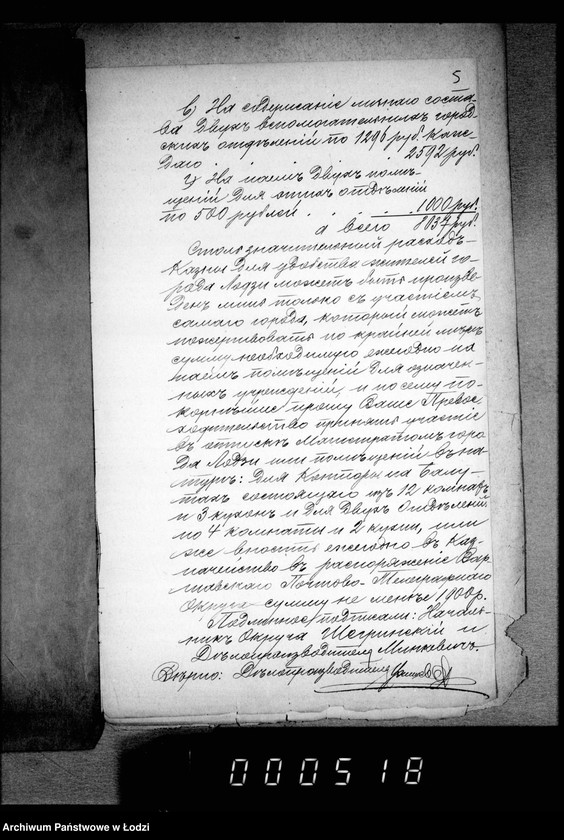 5
в) На содержаніе личнаго соста-
ва двухъ вспомогательныхъ город-
скихъ отдѣленій по 1296 руб. каж-
даго . . . 2592 руб.
г) На наемъ двухъ помѣ-
щеній для этихъ отдѣленій
по 500 рублей . . . 1000 руб.
а всего 8037 руб.
Столь значительный расходъ
казны для удобства жителей го-
рода Лодзи можетъ быть произве-
денъ лишь только съ участіемъ
самаго города, который можетъ
пожертвовать по крайней мѣрѣ
сумму необходимую ежегодно на
наемъ помѣщеній для означен-
ныхъ учрежденій, и посему по-
корнѣйше прошу Ваше Превос-
ходительство принять участіе
въ отпускѣ Магистратомъ горо
да Лодзи или помѣщеній въ на-
турѣ: для Конторы на Балу-
тахъ состоящаго изъ 12 комнатъ
и 3 кухонь и для двухъ отдѣленій
по 4 комнаты и 2 кухни, или
же вносить ежегодно въ Каз-
начейство въ распоряженіе Вар-
шавскаго Почтово-Телеграфнаго
Округа сумму не менѣе 1900 р.
Подлинное подписали: Началь-
никъ Округа Шегринскій и
Дѣлопроизводитель Минкевичъ.
Вѣрно: Дѣлопроизводитель
000518
Archiwum Państwowe w Łodzi